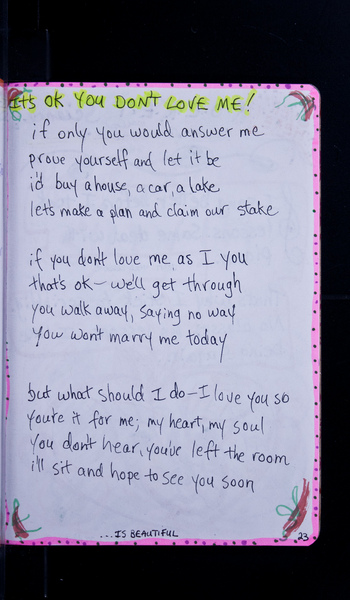 It's OK YOU DON'T LOVE ME!
if only you would answer me
prove yourself and let it be
i'd buy a house, a car, a lake
let's make a plan and claim our stake
if you don't love me as I you
that's ok - we'll get through
you walk away, saying no way
you won't marry me today
but what should I do - I love you so
you're it for me; my heart, my soul
you don't hear, you've left the room
i'll sit and hope to see you soon
...IS BEAUTIFUL
23